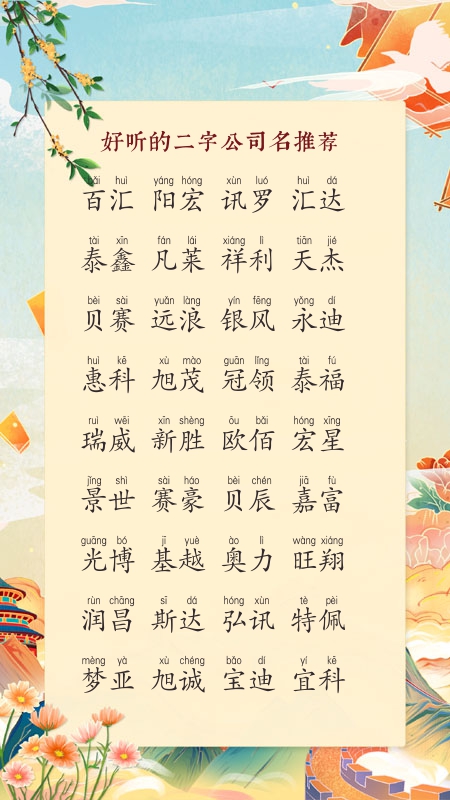 好听的二字公司名推荐
bǎi huì yáng hóng xùn luó huì dá
百汇 阳宏 讯罗 汇达
tài xīn fán lái xiáng lì tiān jié
泰鑫 凡莱 祥利 天杰
bèi sài yuǎn làng yín fēng yǒng dí
贝赛 远浪 银风 永迪
huì kē xù mào guān lǐng tài fú
惠科 旭茂 冠领 泰福
ruì wēi xīn shèng ōu bǎi hóng xīng
瑞威 新胜 欧佰 宏星
jǐng shì sài háo bèi chén jiā fù
景世 赛豪 贝辰 嘉富
guāng bó jī yuè ào lì wàng xiáng
光博 基越 奥力 旺翔
rùn chāng sī dá hóng xùn tè pèi
润昌 斯达 弘讯 特佩
mèng yà xù chéng bǎo dí yí kē
梦亚 旭诚 宝迪 宜科